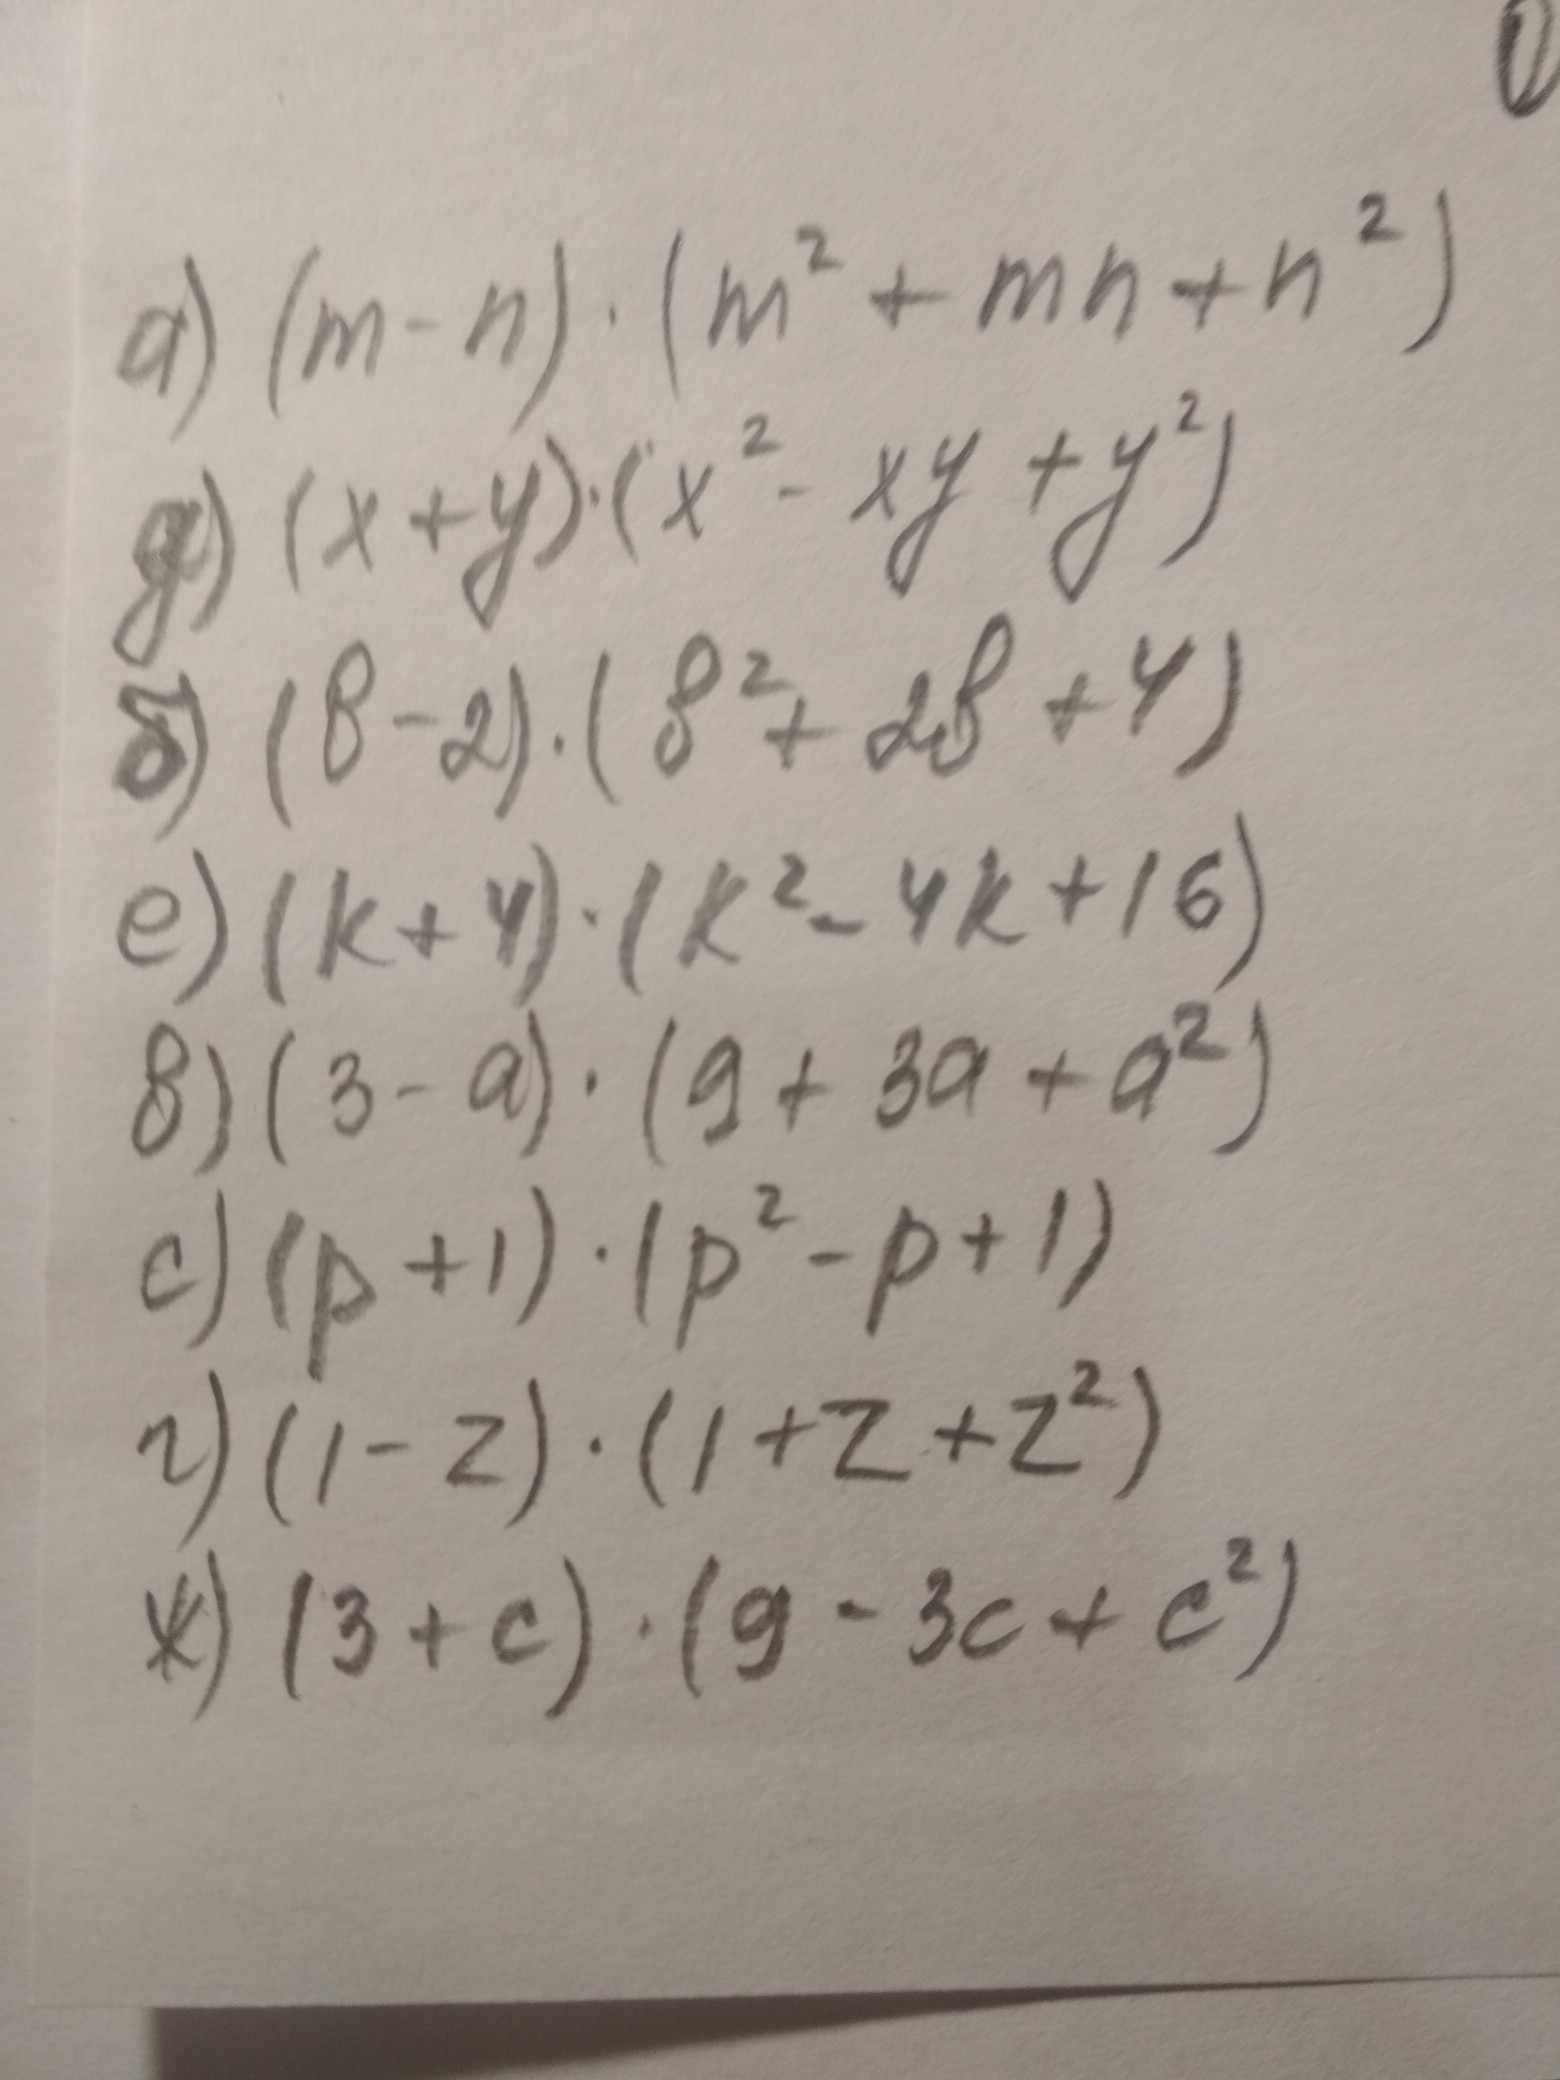 1
а) (m - n) · (m² + mn + n²)
д) (x + y) · (x² - xy + y²)
б) (b - 2) · (b² + 2b + 4)
е) (k + 4) · (k² - 4k + 16)
в) (3 - a) · (9 + 3a + a²)
с) (p + 1) · (p² - p + 1)
г) (1 - z) · (1 + z + z²)
ж) (3 + c) · (9 - 3c + c²)